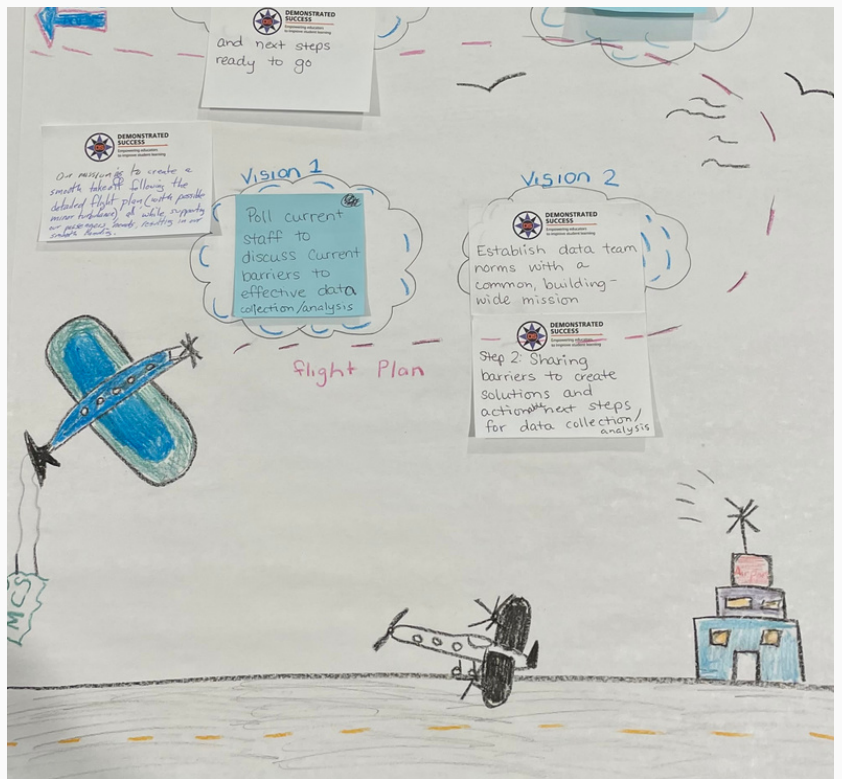 DEMONSTRATED
SUCCESS
Empowering educators
to improve student learning
and next steps
ready to go
DEMONSTRATED
SUCCESS
Empowering educators
to improve student learning
Our mission is to create a
smooth takeoff following the
detailed flight plan (with possible
minor turbulence) all while supporting
our passengers' needs, resulting in our
smooth landing.
Vision 1
Poll current
staff to
discuss current
barriers to
effective data
collection/analysis
Vision 2
DEMONSTRATED
SUCCESS
Empowering educators
to improve student learning
Establish data team
norms with a
common, building-
wide mission
DEMONSTRATED
SUCCESS
Empowering educators
to improve student learning
Step 2: Sharing
barriers to create
solutions and
actionable next steps
for data collection/
analysis
flight Plan
MCS